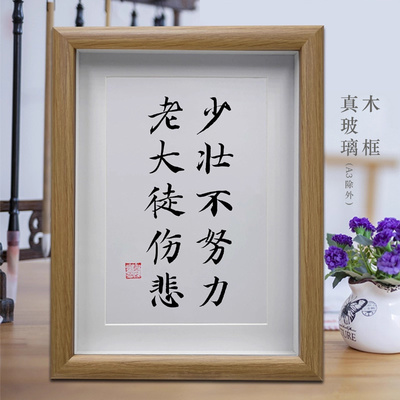 少壮不努力
老大徒伤悲
木框
真玻璃(A3除外)